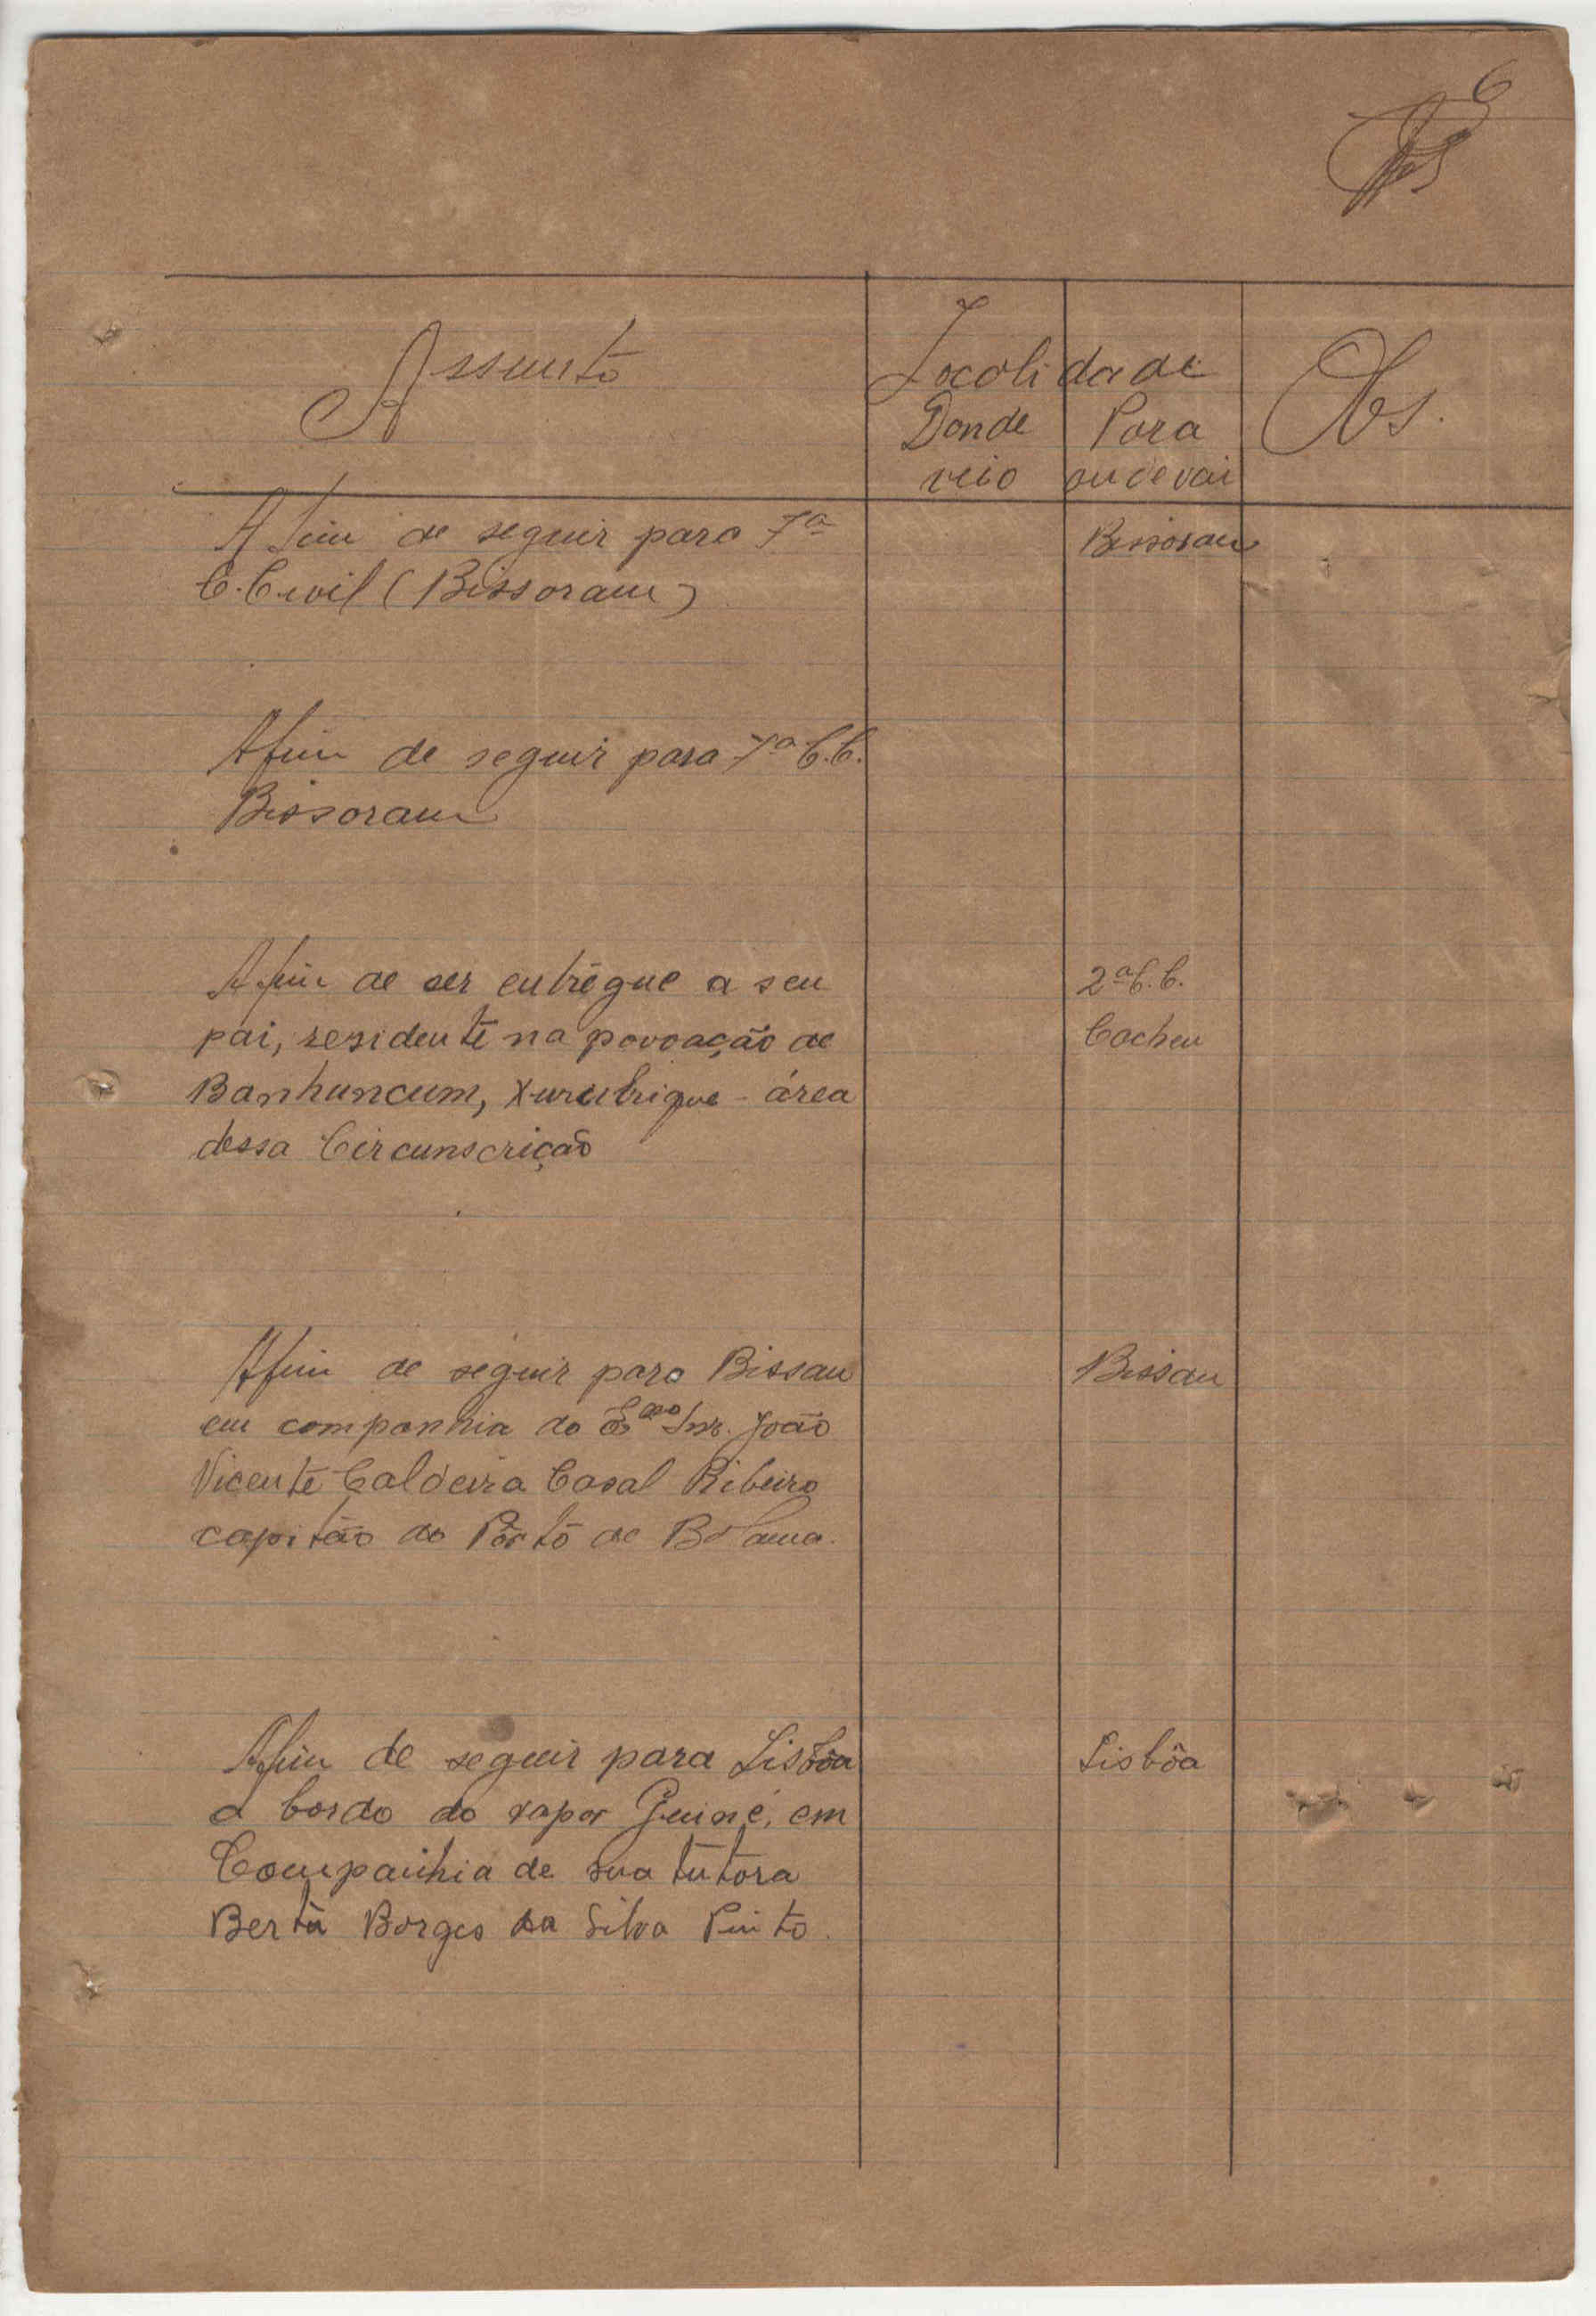 6
Assunto
Localidade
Obs.
Donde
Para
veio
onde vai
Afim de seguir para 7ª
Bissoram
C. Civil (Bissoram)
Afim de seguir para 7ª C.C.
Bissoram
Afim de ser entrégue a seu
2ª C.C.
pai, residente na povoação de
Cacheu
Banhuncum, Xurubrique - área
dessa Circunscrição
Afim de seguir para Bissau
Bissau
em companhia do Exmo Snr. João
Vicente Caldeira Casal Ribeiro
capitão do Pôrto de Bolama.
Afim de seguir para Lisbôa
Lisbôa
a bordo do vapor Guiné, em
Companhia de sua tutora
Berta Borges da Silva Pinto.